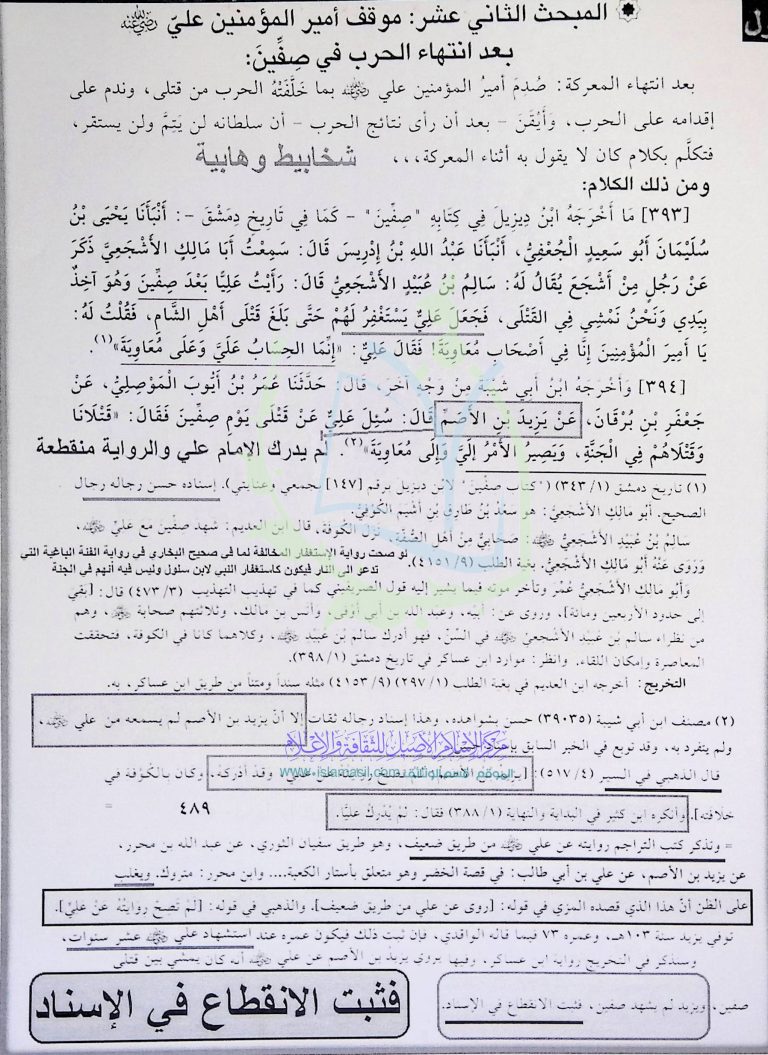 المبحث الثاني عشر: موقف أمير المؤمنين عليّ رضي الله عنه
بعد انتهاء الحرب في صِفِّينَ:
ول
بعد انتهاء المعركة: صُدِمَ أميرُ المؤمنين علي رضي الله عنه بما خَلَّفَتْهُ الحرب من قتلى، وندم على
إقدامه على الحرب، وَأَيْقَنَ - بعد أن رأى نتائج الحرب - أن سلطانه لن يَتِمَّ ولن يستقر،
فتكلَّم بكلام كان لا يقول به أثناء المعركة،،،
شخابيط وهابية
ومن ذلك الكلام:
[٣٩٣] مَا أَخْرَجَهُ ابْنُ دِيزِيلَ فِي كِتَابِهِ "صِفِّينَ" - كَمَا فِي تَارِيخِ دِمَشْقَ -: أَنْبَأَنَا يَحْيَى بْنُ
سُلَيْمَانَ أَبُو سَعِيدٍ الْجُعْفِيُّ، أَنْبَأَنَا عَبْدُ اللهِ بْنُ إِدْرِيسَ قَالَ: سَمِعْتُ أَبَا مَالِكٍ الأَشْجَعِيَّ ذَكَرَ
عَنْ رَجُلٍ مِنْ أَشْجَعَ يُقَالُ لَهُ: سَالِمُ بْنُ عُبَيْدٍ الأَشْجَعِيُّ قَالَ: رَأَيْتُ عَلِيًّا بَعْدَ صِفِّينَ وَهُوَ آخِذٌ
بِيَدِي وَنَحْنُ نَمْشِي فِي الْقَتْلَى، فَجَعَلَ عَلِيٌّ يَسْتَغْفِرُ لَهُمْ حَتَّى بَلَغَ قَتْلَى أَهْلِ الشَّامِ، فَقُلْتُ لَهُ:
يَا أَمِيرَ الْمُؤْمِنِينَ إِنَّا فِي أَصْحَابِ مُعَاوِيَةَ! فَقَالَ عَلِيٌّ: «إِنَّمَا الحِسَابُ عَلَيَّ وَعَلَى مُعَاوِيَةَ»(١).
[٣٩٤] وَأَخْرَجَهُ ابْنُ أَبِي شَيْبَةَ مِنْ وَجْهٍ آخَرَ، قال: حَدَّثَنَا عُمَرُ بْنُ أَيُّوبَ الْمَوْصِلِيُّ، عَنْ
جَعْفَرِ بْنِ بُرْقَانَ، عَنْ يَزِيدَ بْنِ الأَصَمِّ قَالَ: سُئِلَ عَلِيٌّ عَنْ قَتْلَى يَوْمِ صِفِّينَ فَقَالَ: «قَتْلَانَا
وَقَتْلَاهُمْ فِي الْجَنَّةِ، وَيَصِيرُ الأَمْرُ إِلَيَّ وَإِلَى مُعَاوِيَةَ»(٢). لم يدرك الامام علي والرواية منقطعة
(١) تاريخ دمشق (١/ ٣٤٣) ("كتاب صفِّين" لابن ديزيل برقم [١٤٧] بجمعي وعنايتي). إسناده حسن رجاله رجال
الصحيح. أبُو مَالِكٍ الأَشْجَعِيُّ: هو سَعْدُ بْنُ طَارِقِ بْنِ أَشْيَمَ الكُوفِيُّ.
سَالِمُ بْنُ عُبَيْدٍ الأَشْجَعِيُّ رضي الله عنه: صَحَابِيٌّ مِنْ أَهْلِ الصُّفَّةِ، نَزَلَ الكُوفَةَ، قال ابن العديم: شهد صِفِّينَ مع عليّ رضي الله عنه،
وَرَوَى عَنْهُ أَبُو مَالِكٍ الأَشْجَعِيُّ. بغية الطلب (٩/ ٤١٥١).
لو صحت رواية الإستغفار المخالفة لما في صحيح البخاري في رواية الفئة الباغية التي
تدعو الى النار فيكون كاستغفار النبي لابن سلول وليس فيه أنهم في الجنة
وَأَبُو مَالِكٍ الأَشْجَعِيُّ عُمِّرَ وتأخر موته فيما يشير إليه قول الصريفيني كما في تهذيب التهذيب (٣/ ٤٧٣) قال: [بَقِيَ
إلى حدود الأربعين ومائة]، وروى عن: أبيه، وعبد الله بن أبي أوفى، وأنس بن مالك، وثلاثتهم صحابة رضي الله عنهم، وهم
من نظراء سالم بْنِ عُبَيْدٍ الأَشْجَعِيِّ رضي الله عنه في السِّنِّ، فهو أدرك سالم بْنَ عُبَيْدٍ رضي الله عنه، وكلاهما كانا في الكوفة، فتحققت
المعاصرة وإمكان اللقاء. وانظر: موارد ابن عساكر في تاريخ دمشق (١/ ٣٩٨).
التخريج: أخرجه ابن العديم في بغية الطلب (١/ ٢٩٧) (٩/ ٤١٥٣) مثله سنداً ومتناً من طريق ابن عساكر، به.
(٢) مصنف ابن أبي شيبة (٣٩٠٣٥) حسن بشواهده، وهذا إسناد رجاله ثقات إلا أنّ يزيد بن الأصم لم يسمعه من علي رضي الله عنه،
ولم يتفرد به، وقد توبع في الخبر السابق
مركز الإمام الأصيل للثقافة والإعلام
قال الذهبي في السير (٤/ ٥١٧): وقد أدْرَكَهُ، وكان بالكوفة في
www.islamasil.com
خلافته]. وأنكره ابن كثير في البداية والنهاية (١/ ٣٨٨) فقال: لم يُدْرِكْ عَلِيًّا.
٤٨٩
=
= وتذكر كتب التراجم روايته عن علي رضي الله عنه من طريق ضعيف، وهو طريق سفيان الثوري، عن عبد الله بن محرر،
عن يزيد بن الأصم، عن علي بن أبي طالب: في قصة الخضر وهو متعلق بأستار الكعبة.... وابن محرر: متروك. ويغلب
على الظن أنّ هذا الذي قصده المزي في قوله: [روى عن علي من طريق ضعيف]. والذهبي في قوله: [لَمْ تَصِحَّ رِوَايَتُهُ عَنْ عَلِيٍّ].
توفي يزيد سنة ١٠٣هـ، وعمره ٧٣ فيما قاله الواقدي، فإن ثبت ذلك فيكون عمره عند استشهاد علي رضي الله عنه عشر سنوات،
وسنذكر في التخريج رواية ابن عساكر، وفيها يروي يزيد بن الأصم عن علي رضي الله عنه أنه كان يمشي بين قتلى
صفين، ويزيد لم يشهد صفين، فثبت الانقطاع في الإسناد.
فثبت الانقطاع في الإسناد